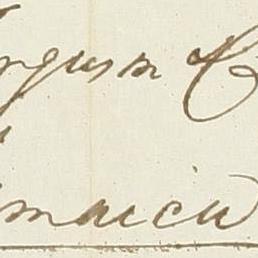 rguson &
maica